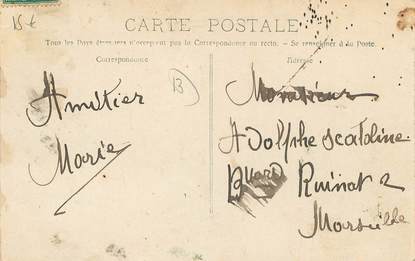 15 €
CARTE POSTALE
Tous les Pays étrangers n'acceptent pas la Correspondance au recto. - Se renseigner à la Poste.
Correspondance
Adresse
13
Monsieur
Amétier
Adolphe
Marie
Ruinat 2
Marseille